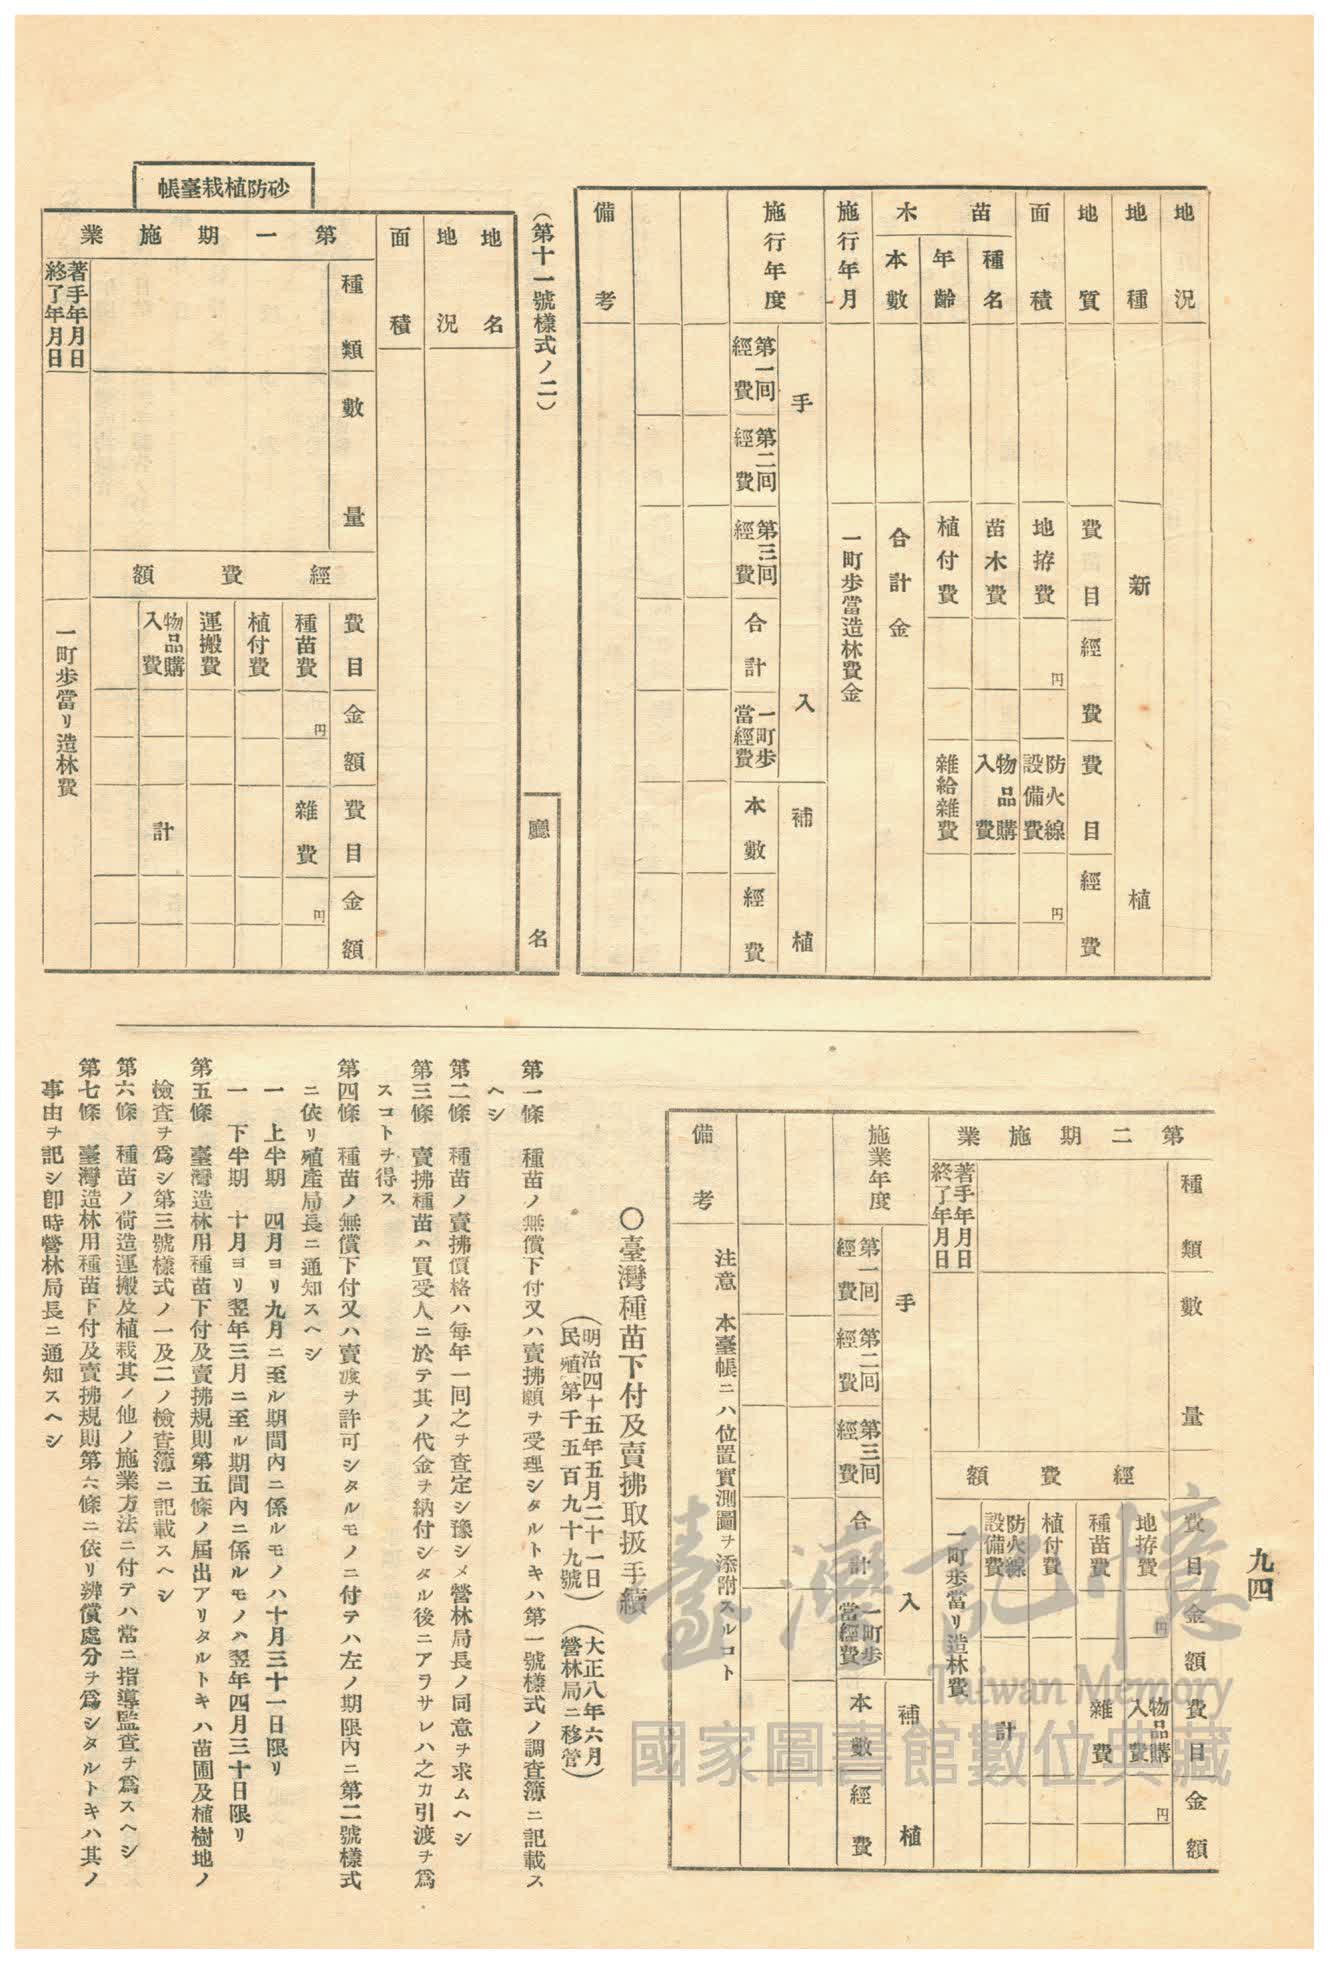 九四
地況
地種 新植
地質 費目 經費 費目 經費
面積 地拵費 円 防火線設備費 円
苗木
種名 苗木費 物品購入費
年齡 植付費 雜給雜費
本數 合計金
施行年月 一町步當造林費金
手入 補植
施行年度 第一回經費 第二回經費 第三回經費 合計 一町步當經費 本數 經費
備考
(第十一號樣式ノ二)
廳名
砂防植栽臺帳
地名
地況
面積
第一期施業
種類 數量
經費額
費目 金額 費目 金額
種苗費 円 雜費 円
植付費
運搬費
物品購入費 計
著手年月日
終了年月日
一町步當リ造林費
第二期施業
種類 數量
經費額
費目 金額 費目 金額
地拵費 円 物品購入費 円
種苗費 雜費
植付費
防火線設備費 計
著手年月日
終了年月日
一町步當リ造林費
手入 補植
施業年度 第一回經費 第二回經費 第三回經費 合計 一町步當經費 本數 經費
備考
注意 本臺帳ニハ位置實測圖ヲ添附スルコト
〇臺灣種苗下付及賣拂取扱手續
(明治四十五年五月二十一日民殖第千五百九十九號)(大正八年六月營林局ニ移管)
第一條 種苗ノ無償下付又ハ賣拂願ヲ受理シタルトキハ第一號樣式ノ調查簿ニ記載ス
ヘシ
第二條 種苗ノ賣拂價格ハ每年一回之ヲ查定シ豫シメ營林局長ノ同意ヲ求ムヘシ
第三條 賣拂種苗ハ買受人ニ於テ其ノ代金ヲ納付シタル後ニアラサレハ之カ引渡ヲ爲
スコトヲ得ス
第四條 種苗ノ無償下付又ハ賣渡ヲ許可シタルモノニ付テハ左ノ期限內ニ第二號樣式
ニ依リ殖產局長ニ通知スヘシ
一 上半期 四月ヨリ九月ニ至ル期間內ニ係ルモノハ十月三十一日限リ
一 下半期 十月ヨリ翌年三月ニ至ル期間內ニ係ルモノハ翌年四月三十日限リ
第五條 臺灣造林用種苗下付及賣拂規則第五條ノ屆出アリタルトキハ苗圃及植樹地ノ
檢查ヲ爲シ第三號樣式ノ一及二ノ檢查簿ニ記載スヘシ
第六條 種苗ノ荷造運搬及植栽其ノ他ノ施業方法ニ付テハ常ニ指導監查ヲ爲スヘシ
第七條 臺灣造林用種苗下付及賣拂規則第六條ニ依リ辨償處分ヲ爲シタルトキハ其ノ
事由ヲ記シ卽時營林局長ニ通知スヘシ
臺灣記憶
Taiwan Memory
國家圖書館數位典藏